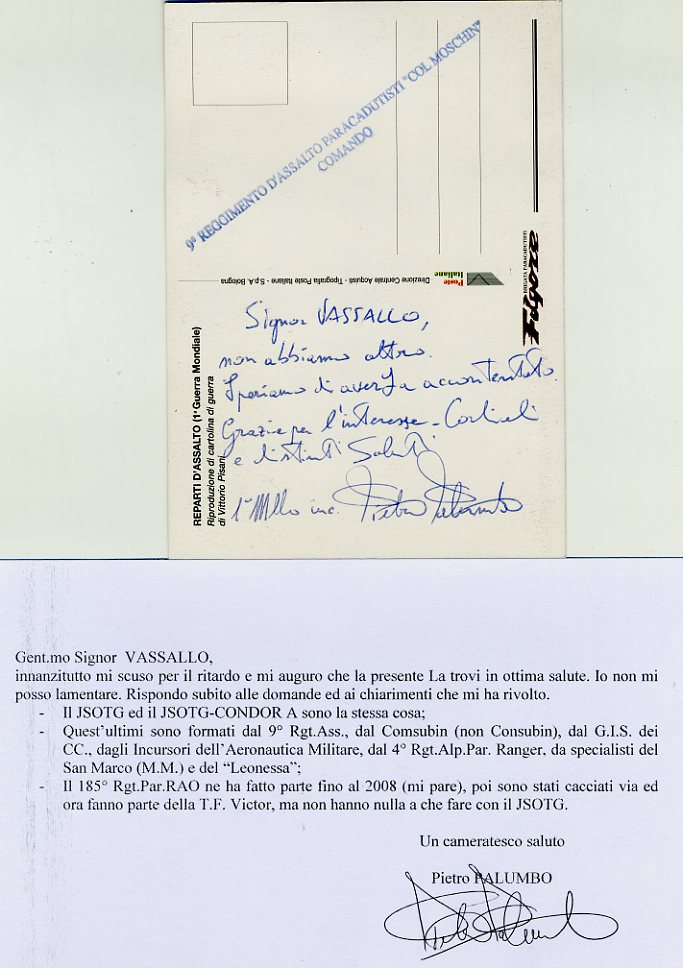 9° REGGIMENTO D'ASSALTO PARACADUTISTI "COL MOSCHIN"
COMANDO
BRIGATA PARACADUTISTI
Folgore
Poste
Italiane
Direzione Centrale Acquisti - Tipografia Poste Italiane - S.p.A. Bologna
REPARTI D'ASSALTO (1ª Guerra Mondiale)
Riproduzione di cartolina di guerra
di Vittorio Pisani
Signor VASSALLO,
non abbiamo altro.
Speriamo di averLa accontentato.
Grazie per l'interesse - Cordiali
e distinti Saluti
1° Mllo inc. Pietro Palumbo
Gent.mo Signor VASSALLO,
innanzitutto mi scuso per il ritardo e mi auguro che la presente La trovi in ottima salute. Io non mi
posso lamentare. Rispondo subito alle domande ed ai chiarimenti che mi ha rivolto.
- Il JSOTG ed il JSOTG-CONDOR A sono la stessa cosa;
- Quest'ultimi sono formati dal 9° Rgt.Ass., dal Comsubin (non Consubin), dal G.I.S. dei
CC., dagli Incursori dell'Aeronautica Militare, dal 4° Rgt.Alp.Par. Ranger, da specialisti del
San Marco (M.M.) e del "Leonessa";
- Il 185° Rgt.Par.RAO ne ha fatto parte fino al 2008 (mi pare), poi sono stati cacciati via ed
ora fanno parte della T.F. Victor, ma non hanno nulla a che fare con il JSOTG.
Un cameratesco saluto
Pietro PALUMBO